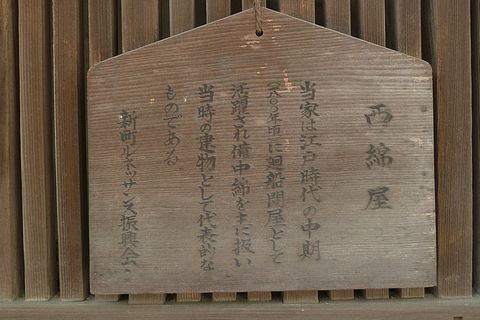 西綿屋
当家は江戸時代の中期
(一八〇〇年頃)に廻船問屋として
活躍され備中綿を主に扱い
当時の建物として代表的な
ものである
新町ルネッサンス振興会